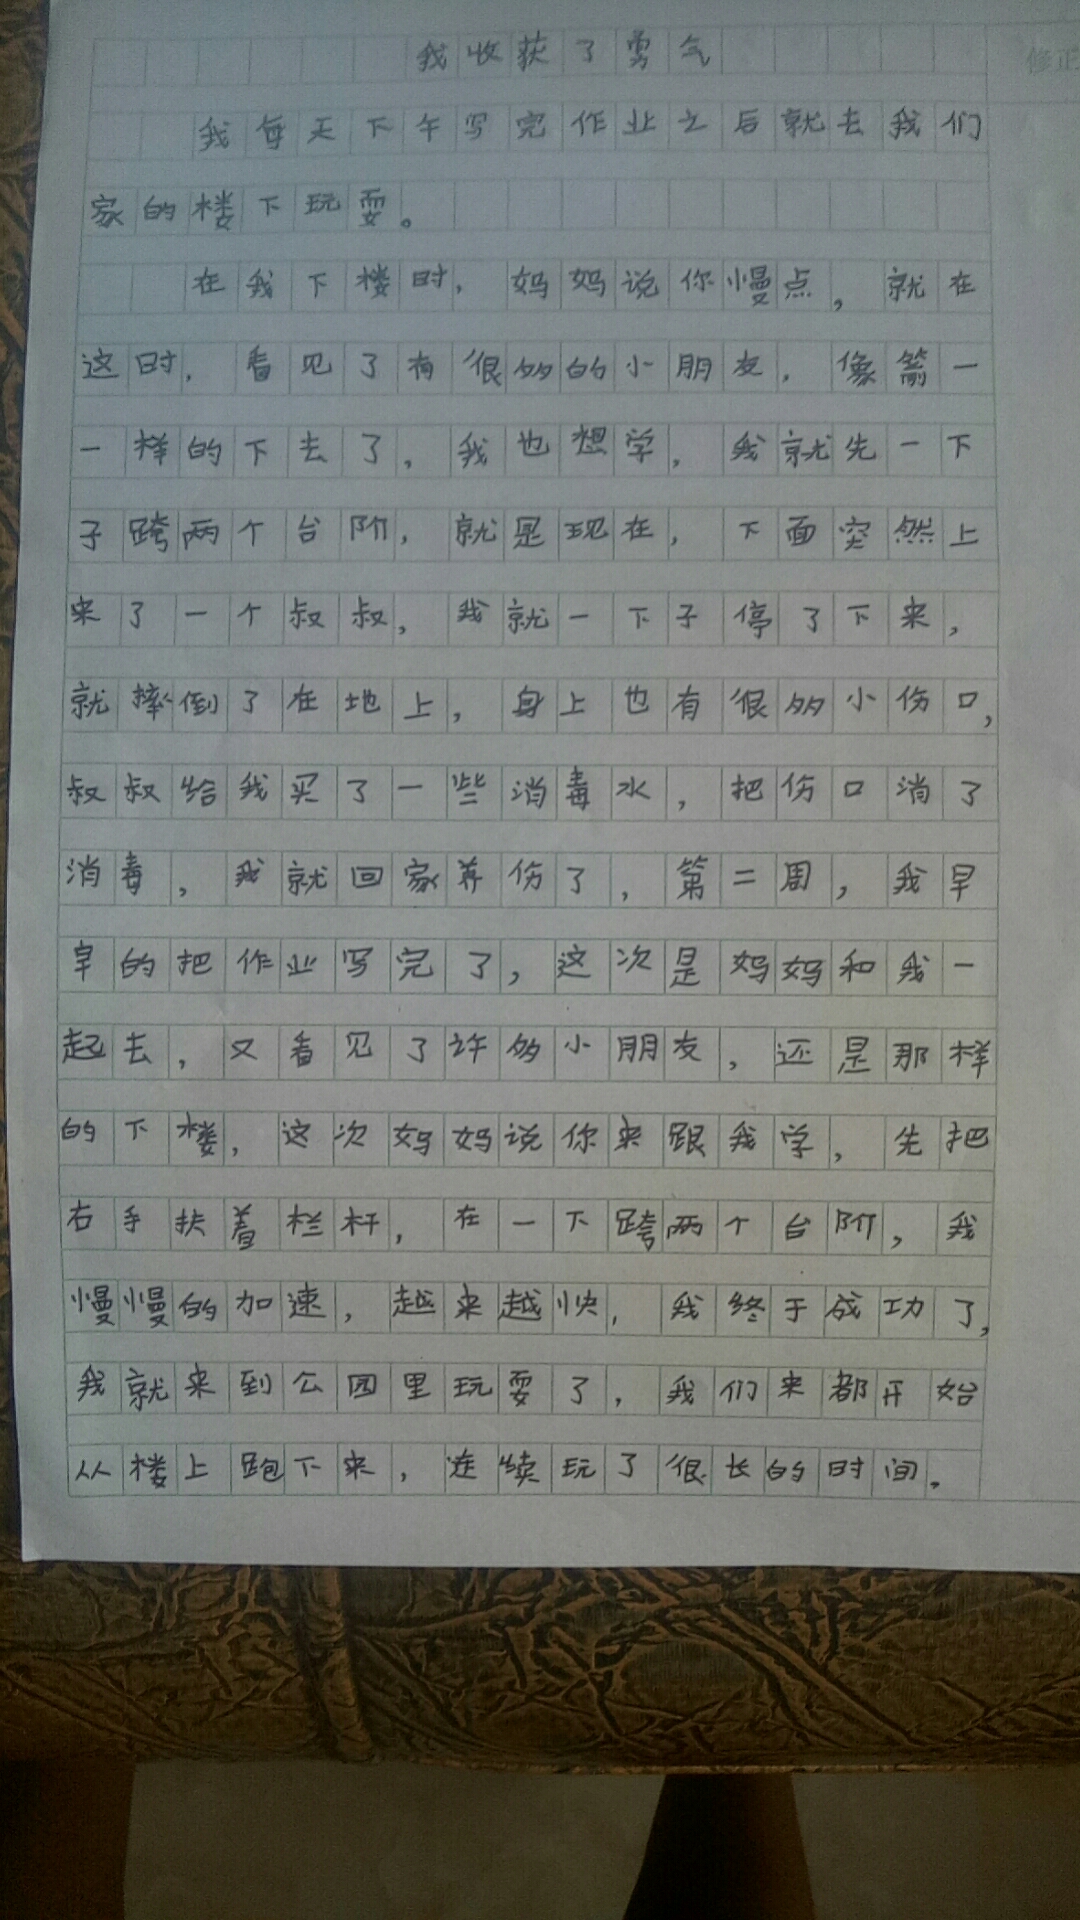 我收获了勇气
修正
我每天下午写完作业之后就去我们
家的楼下玩耍。
在我下楼时，妈妈说你慢点，就在
这时，看见了有很多的小朋友，像箭一
一样的下去了，我也想学，我就先一下
子跨两个台阶，就是现在，下面突然上
来了一个叔叔，我就一下子停了下来，
就摔倒了在地上，身上也有很多小伤口，
叔叔给我买了一些消毒水，把伤口消了
消毒，我就回家养伤了，第二周，我早
早的把作业写完了，这次是妈妈和我一
起去，又看见了许多小朋友，还是那样
的下楼，这次妈妈说你来跟我学，先把
右手扶着栏杆，在一下跨两个台阶，我
慢慢的加速，越来越快，我终于成功了，
我就来到公园里玩耍了，我们来都开始
从楼上跑下来，连续玩了很长的时间。